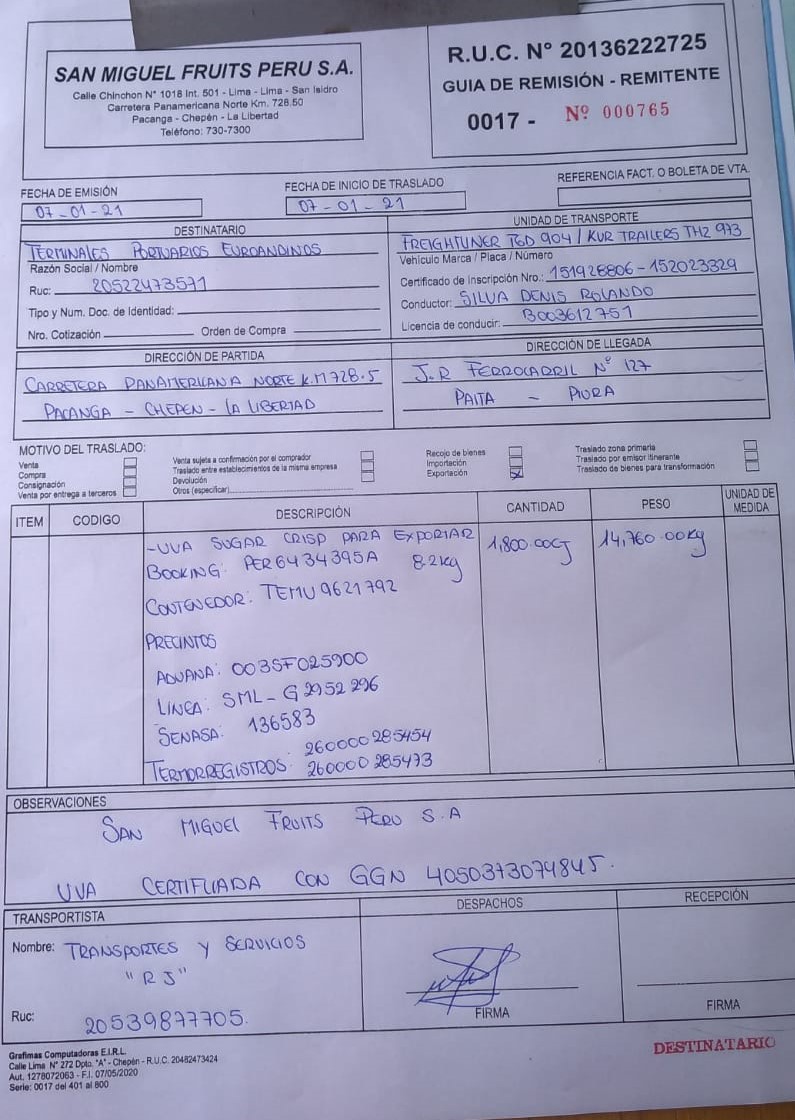 SAN MIGUEL FRUITS PERU S.A.
Calle Chinchon N° 1018 Int. 501 - Lima - Lima - San Isidro
Carretera Panamericana Norte Km. 728.50
Pacanga - Chepén - La Libertad
Teléfono: 730-7300
R.U.C. N° 20136222725
GUIA DE REMISIÓN - REMITENTE
0017 - Nº 000765
FECHA DE EMISIÓN
07-01-21
FECHA DE INICIO DE TRASLADO
07-01-21
REFERENCIA FACT. O BOLETA DE VTA.
DESTINATARIO
TERMINALES PORTUARIOS EUROANDINOS
Razón Social / Nombre
Ruc: 20522473571
Tipo y Num. Doc. de Identidad:
Nro. Cotización Orden de Compra
UNIDAD DE TRANSPORTE
FREIGHTLINER T6D 904 / KUR TRAILERS TH2 973
Vehículo Marca / Placa / Número
Certificado de Inscripción Nro.: 151928806-152023329
Conductor: SILVA DENIS ROLANDO
Licencia de conducir: B003612751
DIRECCIÓN DE PARTIDA
CARRETERA PANAMERICANA NORTE K.M 728.5
PACANGA - CHEPEN - LA LIBERTAD
DIRECCIÓN DE LLEGADA
J.R FERROCARRIL Nº 127
PAITA - PIURA
MOTIVO DEL TRASLADO:
Venta
Compra
Consignación
Venta por entrega a terceros
Venta sujeta a confirmación por el comprador
Traslado entre establecimientos de la misma empresa
Devolución
Otros (especificar)
Recojo de bienes
Importación
Exportación X
Traslado zona primaria
Traslado por emisor itinerante
Traslado de bienes para transformación
ITEM CODIGO DESCRIPCIÓN CANTIDAD PESO UNIDAD DE MEDIDA
-UVA SUGAR CRISP PARA EXPORTAR 1,800.00CJ 14,760.00Kg
BOOKING: PER6434395A 8.2Kg
CONTENEDOR: TEMU 9621792
PRECINTOS
ADUANA: 003SF025900
LINEA: SML-G2952296
SENASA: 136583
260000285454
TERMORREGISTROS: 260000285473
OBSERVACIONES
SAN MIGUEL FRUITS PERU S.A
UVA CERTIFICADA CON GGN 4050373074845.
TRANSPORTISTA
Nombre: TRANSPORTES Y SERVICIOS
"RJ"
Ruc: 20539877705.
DESPACHOS
FIRMA
RECEPCIÓN
FIRMA
Grafimas Computadoras E.I.R.L.
Calle Lima N° 272 Dpto. "A" - Chepén - R.U.C. 20482473424
Aut. 1278072063 - F.I. 07/05/2020
Serie: 0017 del 401 al 800
DESTINATARIO